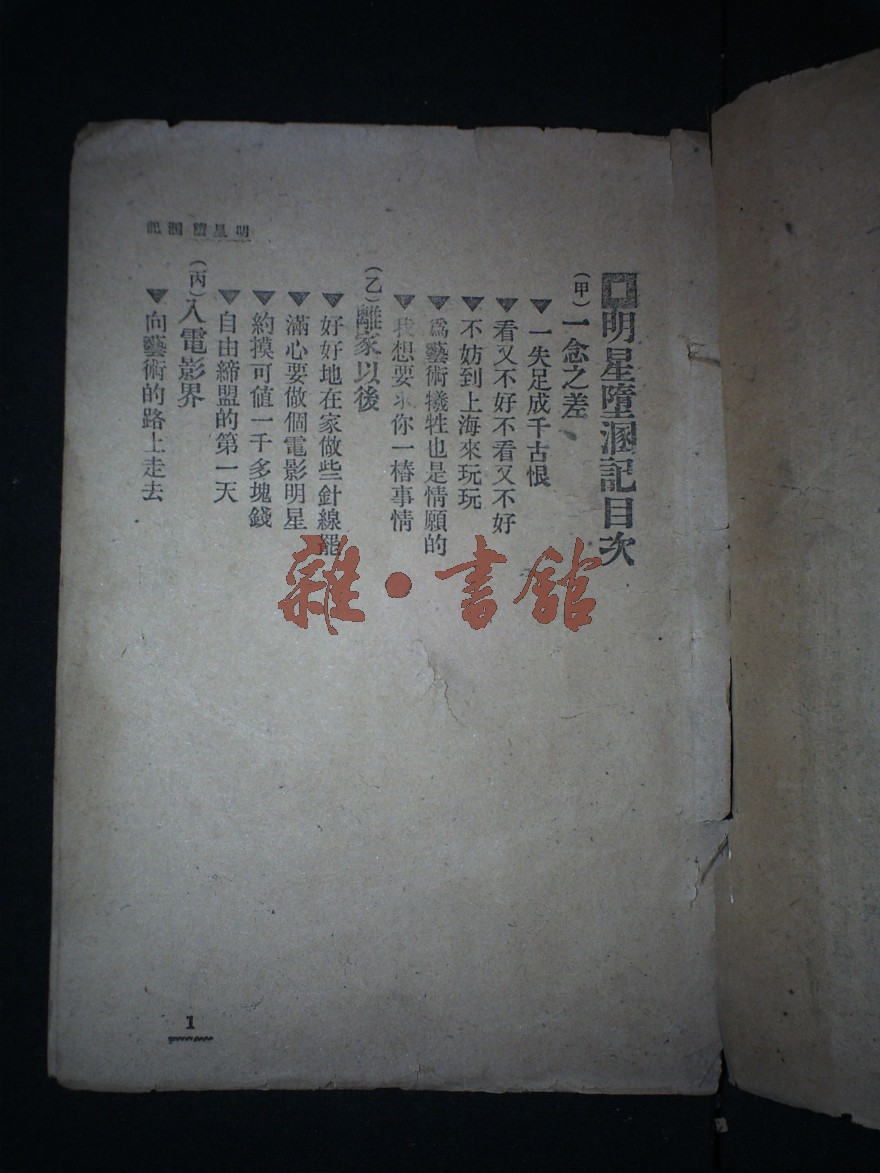 明星墮溷記
明星墮溷記目次
(甲)一念之差
▼一失足成千古恨
▼看又不好不看又不好
▼不妨到上海來玩玩
▼爲藝術犧牲也是情願的
▼我想要求你一樁事情
(乙)離家以後
▼好好地在家做些針線罷
▼滿心要做個電影明星
▼約摸可值一千多塊錢
▼自由締盟的第一天
(丙)入電影界
▼向藝術的路上走去
1
雜·書館